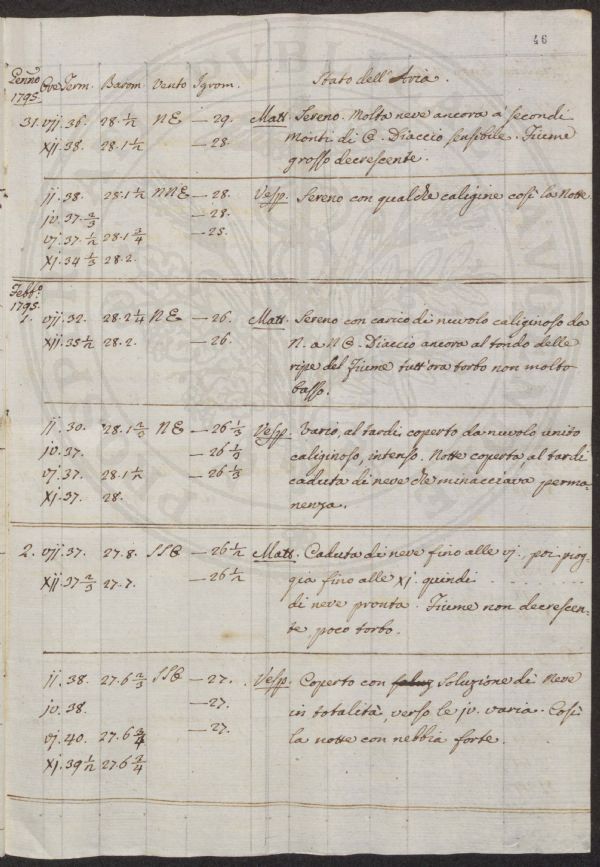 46
Genn.o Ore Term. Barom. Vento Igrom. Stato dell'Aria.
1795.
31. vij. 36. 28.1/2 NE — 29. Matt. Sereno. Molta neve ancora a' secondi
xij. 38. 28.1 1/2 — 28. Monti di @. Diaccio sensibile. Fiume
grosso decrescente.
ij. 38. 28.1 1/2 NNE — 28. Vesp. Sereno con qualche caligine così la Notte.
iv. 37. 2/3 — 28.
vj. 37. 1/2 28.1 3/4 — 25.
xj. 34 1/3 28.2.
Febb.o
1795.
1. vij. 32. 28.2 1/4 NE — 26. Matt. Sereno con carico di nuvolo caliginoso da
xij. 35 1/2 28.2. — 26. N. a N @. Diaccio ancora al tondo delle
ripe del Fiume tutt'ora torbo non molto
basso.
ij. 30. 28.1 2/3 NE — 26 1/3 Vesp. Vario, al tardi coperto da nuvolo unito
iv. 37. — 26 1/3 caliginoso, intenso. Notte coperta, al tardi
vj. 37. 28.1 1/2 — 26 1/3 caduta di neve che minacciava perma-
xj. 37. 28. nenza.
2. vij. 37. 27.8. SSE — 26 1/2 Matt. Caduta di neve fino alle vj. poi piog-
xij. 37 2/3 27.7. — 26 1/2 gia fino alle xj. quindi
di neve pronta. Fiume non decrescen-
te, poco torbo.
ij. 38. 27.6 2/3 SSE — 27. Vesp. Coperto con soluzione di Neve
iv. 38. — 27. in totalità, verso le iv. varia. Così
vj. 40. 27.6 3/4 — 27. la notte con nebbia forte.
xj. 39 1/2 27.6 3/4